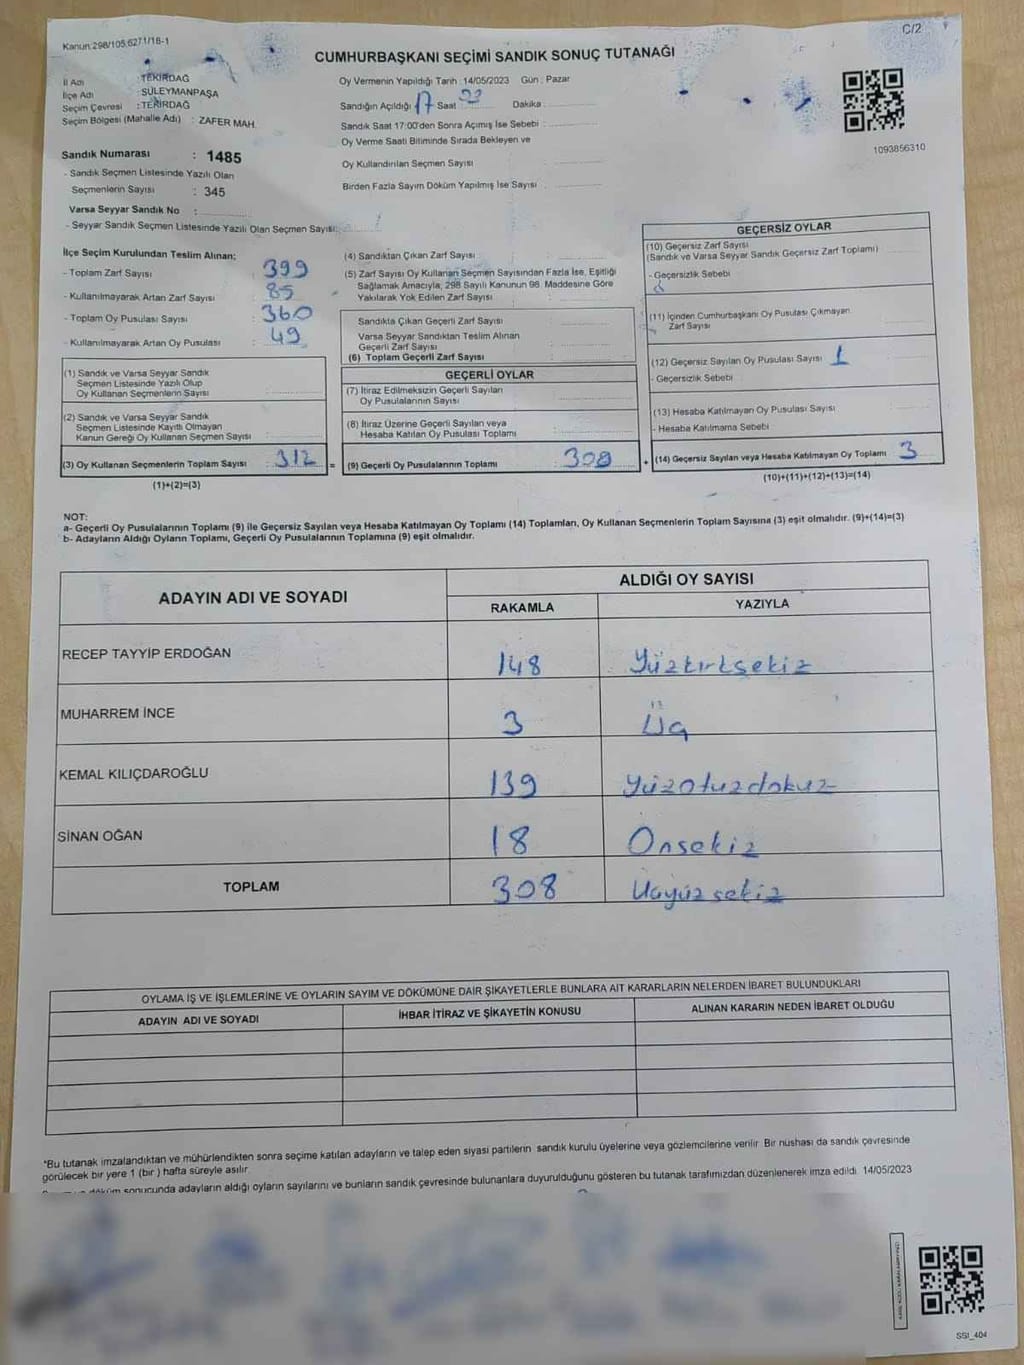 Kanun:298/105,6271/18-1
C/2
CUMHURBAŞKANI SEÇİMİ SANDIK SONUÇ TUTANAĞI
İl Adı : TEKİRDAĞ
İlçe Adı : SÜLEYMANPAŞA
Seçim Çevresi : TEKİRDAĞ
Seçim Bölgesi (Mahalle Adı) : ZAFER MAH.
Sandık Numarası : 1485
- Sandık Seçmen Listesinde Yazılı Olan
Seçmenlerin Sayısı : 345
Varsa Seyyar Sandık No :
- Seyyar Sandık Seçmen Listesinde Yazılı Olan Seçmen Sayısı:
Oy Vermenin Yapıldığı Tarih : 14/05/2023 Gün : Pazar
Sandığın Açıldığı 17 Saat Dakika :
Sandık Saat 17:00'den Sonra Açımış İse Sebebi :
Oy Verme Saati Bitiminde Sırada Bekleyen ve
Oy Kullandırılan Seçmen Sayısı :
Birden Fazla Sayım Döküm Yapılmış İse Sayısı :
1093856310
İlçe Seçim Kurulundan Teslim Alınan;
- Toplam Zarf Sayısı : 399
- Kullanılmayarak Artan Zarf Sayısı : 85
- Toplam Oy Pusulası Sayısı : 360
- Kullanılmayarak Artan Oy Pusulası : 49
(1) Sandık ve Varsa Seyyar Sandık
Seçmen Listesinde Yazılı Olup
Oy Kullanan Seçmenlerin Sayısı :
(2) Sandık ve Varsa Seyyar Sandık
Seçmen Listesinde Kayıtlı Olmayan
Kanun Gereği Oy Kullanan Seçmen Sayısı :
(3) Oy Kullanan Seçmenlerin Toplam Sayısı : 312 =
(1)+(2)=(3)
(4) Sandıktan Çıkan Zarf Sayısı :
(5) Zarf Sayısı Oy Kullanan Seçmen Sayısından Fazla İse, Eşitliği
Sağlamak Amacıyla, 298 Sayılı Kanunun 98. Maddesine Göre
Yakılarak Yok Edilen Zarf Sayısı :
Sandıkta Çıkan Geçerli Zarf Sayısı :
Varsa Seyyar Sandıktan Teslim Alınan
Geçerli Zarf Sayısı :
(6) Toplam Geçerli Zarf Sayısı :
GEÇERLİ OYLAR
(7) İtiraz Edilmeksizin Geçerli Sayılan
Oy Pusulalarının Sayısı :
(8) İtiraz Üzerine Geçerli Sayılan veya
Hesaba Katılan Oy Pusulası Toplamı :
(9) Geçerli Oy Pusulalarının Toplamı : 308 +
GEÇERSİZ OYLAR
(10) Geçersiz Zarf Sayısı
(Sandık ve Varsa Seyyar Sandık Geçersiz Zarf Toplamı) :
- Geçersizlik Sebebi
(11) İçinden Cumhurbaşkanı Oy Pusulası Çıkmayan
Zarf Sayısı :
(12) Geçersiz Sayılan Oy Pusulası Sayısı : 1
- Geçersizlik Sebebi :
(13) Hesaba Katılmayan Oy Pusulası Sayısı :
- Hesaba Katılmama Sebebi :
(14) Geçersiz Sayılan veya Hesaba Katılmayan Oy Toplamı : 3
(10)+(11)+(12)+(13)=(14)
NOT:
a- Geçerli Oy Pusulalarının Toplamı (9) ile Geçersiz Sayılan veya Hesaba Katılmayan Oy Toplamı (14) Toplamları, Oy Kullanan Seçmenlerin Toplam Sayısına (3) eşit olmalıdır. (9)+(14)=(3)
b- Adayların Aldığı Oyların Toplamı, Geçerli Oy Pusulalarının Toplamına (9) eşit olmalıdır.
ADAYIN ADI VE SOYADI ALDIĞI OY SAYISI
RAKAMLA YAZIYLA
RECEP TAYYİP ERDOĞAN 148 Yüzkırksekiz
MUHARREM İNCE 3 Üç
KEMAL KILIÇDAROĞLU 139 Yüzotuzdokuz
SİNAN OĞAN 18 Onsekiz
TOPLAM 308 Üçyüzsekiz
OYLAMA İŞ VE İŞLEMLERİNE VE OYLARIN SAYIM VE DÖKÜMÜNE DAİR ŞİKAYETLERLE BUNLARA AİT KARARLARIN NELERDEN İBARET BULUNDUKLARI
ADAYIN ADI VE SOYADI İHBAR İTİRAZ VE ŞİKAYETİN KONUSU ALINAN KARARIN NEDEN İBARET OLDUĞU
*Bu tutanak imzalandıktan ve mühürlendikten sonra seçime katılan adayların ve talep eden siyasi partilerin sandık kurulu üyelerine veya gözlemcilerine verilir. Bir nüshası da sandık çevresinde
görülecek bir yere 1 (bir) hafta süreyle asılır.
döküm sonucunda adayların aldığı oyların sayılarını ve bunların sandık çevresinde bulunanlara duyurulduğunu gösteren bu tutanak tarafımızdan düzenlenerek imza edildi. 14/05/2023
SSI_404